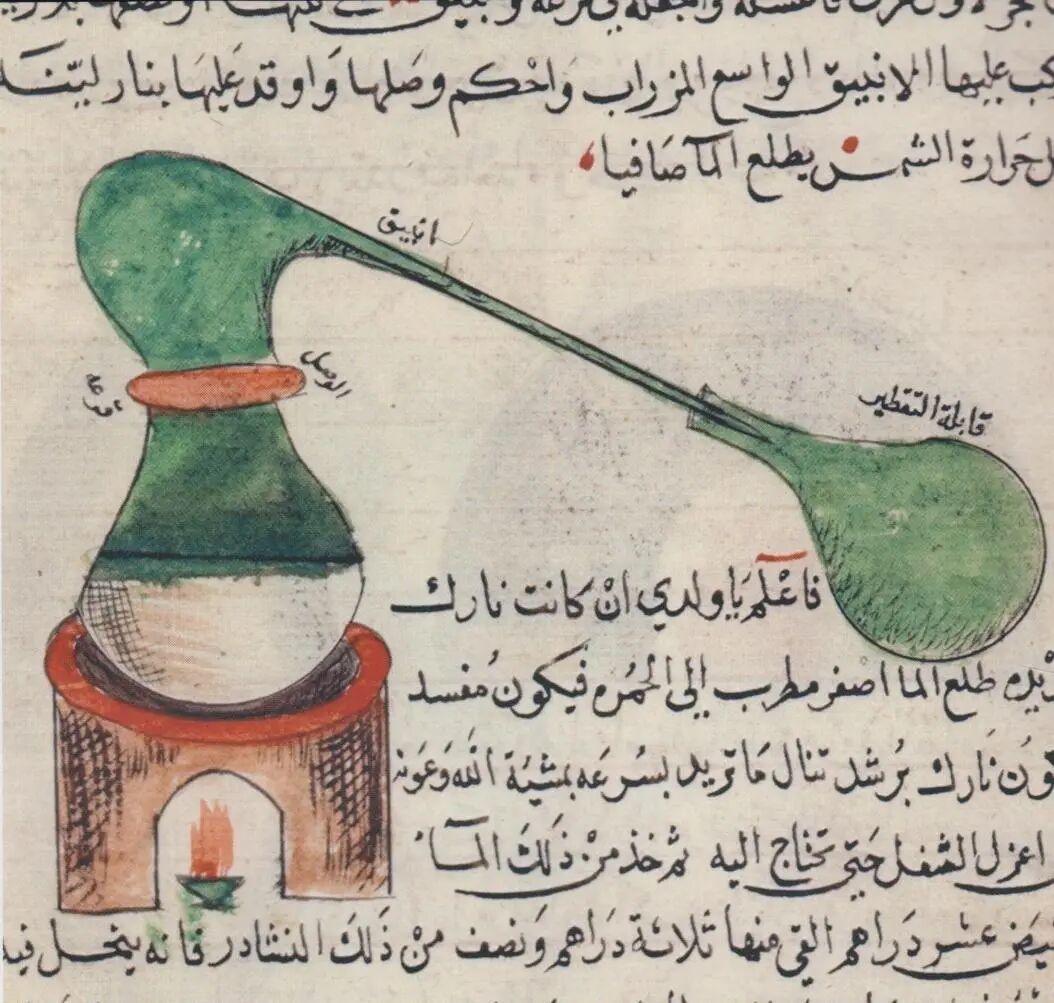 كب عليها الانبيق الواسع المزراب واحكم وصلها واوقد عليها بنار لينـة
ل حرارة الشمس يطلع المآ صافيا
انبيق
الوصل
قرعه
قابلة التقطير
فاعْلم يا ولدي انْ كانت نارك
طلع الما اصفر مطرب إلى الحمره فيكون مُفسد
كون نارك برشد تنال ما تريد بسرعه بمشيّة الله وعونه
اعزل الثفل حتى تحتاج اليه ثم خذ منْ ذلك المآء
عشر دراهم القي منها ثلاثة دراهم ونصف منْ ذلك النشادر فانه ينحل فيه